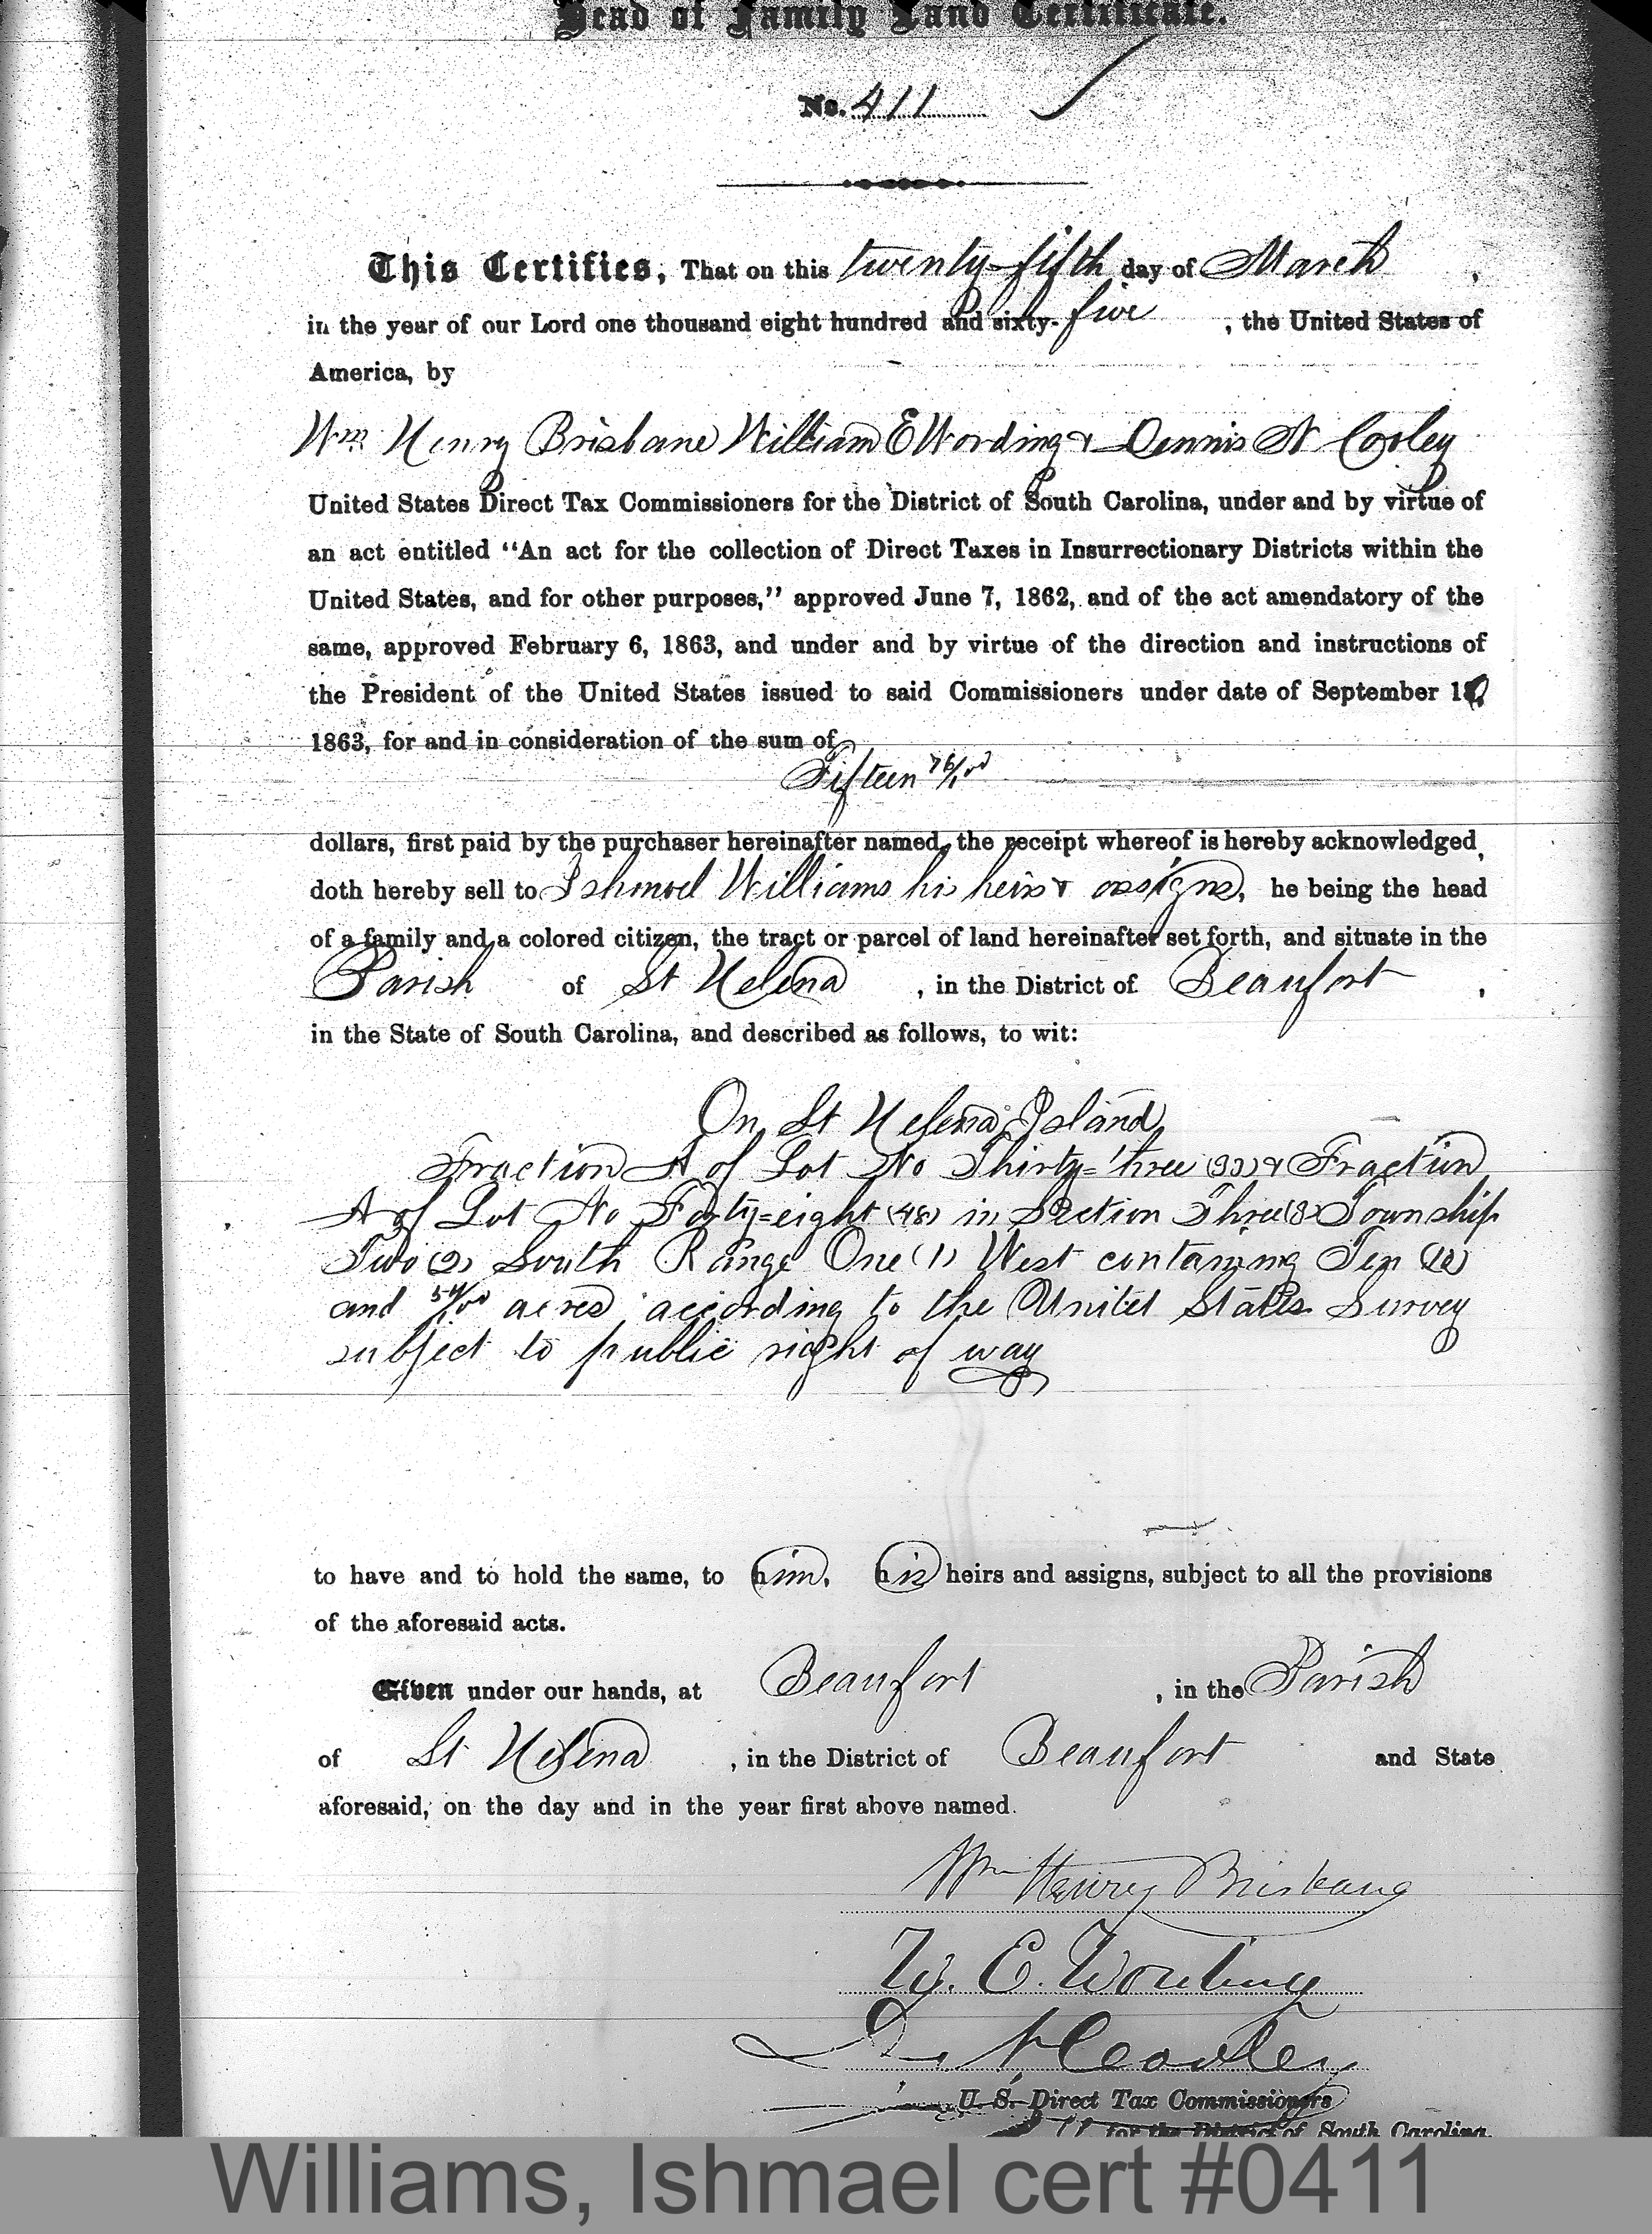 Head of Family Land Certificate.
No. 411
This Certifies, That on this twenty-fifth day of March,
in the year of our Lord one thousand eight hundred and sixty-five, the United States of
America, by
Wm Henry Brisbane William E Wording & Dennis N Cooley
United States Direct Tax Commissioners for the District of South Carolina, under and by virtue of
an act entitled "An act for the collection of Direct Taxes in Insurrectionary Districts within the
United States, and for other purposes," approved June 7, 1862, and of the act amendatory of the
same, approved February 6, 1863, and under and by virtue of the direction and instructions of
the President of the United States issued to said Commissioners under date of September
1863, for and in consideration of the sum of
Fifteen 76/100
dollars, first paid by the purchaser hereinafter named, the receipt whereof is hereby acknowledged,
doth hereby sell to Ishmael Williams his heirs & assigns, he being the head
of a family and a colored citizen, the tract or parcel of land hereinafter set forth, and situate in the
Parish of St Helena, in the District of Beaufort,
in the State of South Carolina, and described as follows, to wit:
On St Helena Island
Fraction A of Lot No Thirty=three (33) & Fraction
A of Lot No Forty=eight (48) in Section Three (3) Township
Two (2) South Range One (1) West containing Ten (10)
and 54/100 acres according to the United States Survey
subject to public right of way
to have and to hold the same, to him, his heirs and assigns, subject to all the provisions
of the aforesaid acts.
Given under our hands, at Beaufort, in the Parish
of St Helena, in the District of Beaufort and State
aforesaid, on the day and in the year first above named.
Wm Henry Brisbane
W. E. Wording
D. N. Cooley
U. S. Direct Tax Commissioners
for the District of South Carolina.
Williams, Ishmael cert #0411